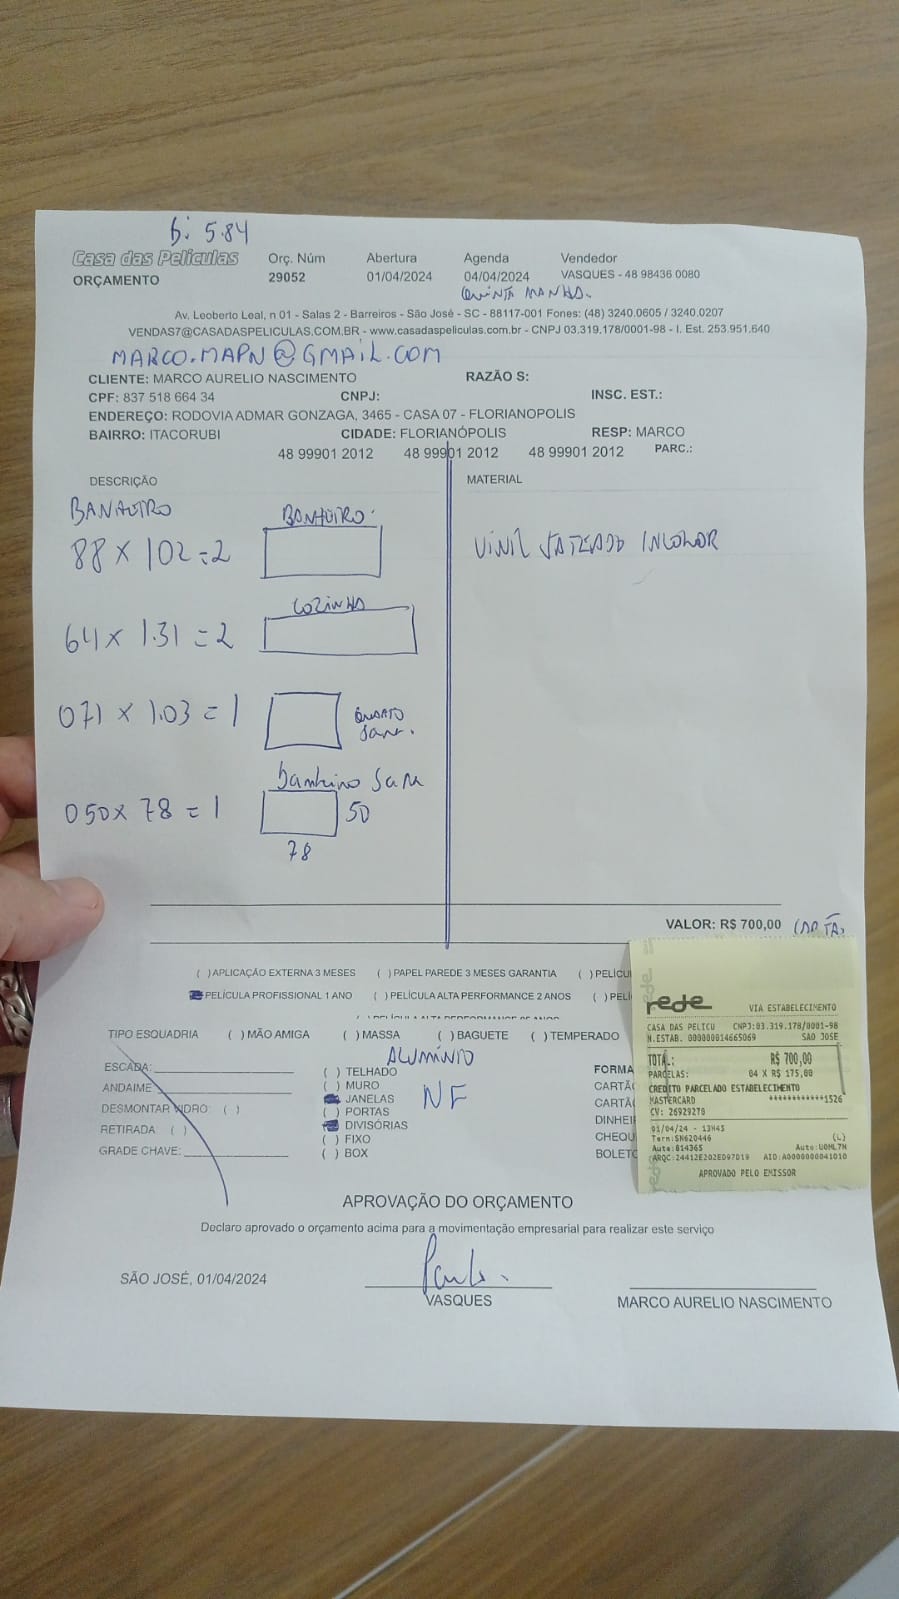 b: 5.84
Casa das Películas
ORÇAMENTO
Orç. Núm
29052
Abertura
01/04/2024
Agenda
04/04/2024
QUINTA MANHÃ.
Vendedor
VASQUES - 48 98436 0080
Av, Leoberto Leal, n 01 - Salas 2 - Barreiros - São José - SC - 88117-001 Fones: (48) 3240.0605 / 3240.0207
VENDAS7@CASADASPELICULAS.COM.BR - www.casadaspeliculas.com.br - CNPJ 03.319.178/0001-98 - I. Est. 253.951.640
MARCO.MAPN@GMAIL.COM
CLIENTE: MARCO AURELIO NASCIMENTO RAZÃO S:
CPF: 837 518 664 34 CNPJ: INSC. EST.:
ENDEREÇO: RODOVIA ADMAR GONZAGA, 3465 - CASA 07 - FLORIANOPOLIS
BAIRRO: ITACORUBI CIDADE: FLORIANÓPOLIS RESP: MARCO
48 99901 2012 48 99901 2012 48 99901 2012 PARC.:
DESCRIÇÃO
MATERIAL
BANHEIRO
BANHEIRO
88 X 102 = 2
VINIL JATEADO INCOLOR
COZINHA
64 x 1.31 = 2
071 x 1.03 = 1
QUARTO
050 x 78 = 1
50
78
VALOR: R$ 700,00
( ) APLICAÇÃO EXTERNA 3 MESES ( ) PAPEL PAREDE 3 MESES GARANTIA ( ) PELÍCU
PELÍCULA PROFISSIONAL 1 ANO ( ) PELÍCULA ALTA PERFORMANCE 2 ANOS ( ) PELÍ
TIPO ESQUADRIA ( ) MÃO AMIGA ( ) MASSA ( ) BAGUETE ( ) TEMPERADO
ALUMÍNIO
ESCADA:
ANDAIME
DESMONTAR VIDRO: ( )
RETIRADA ( )
GRADE CHAVE:
( ) TELHADO
( ) MURO
JANELAS
( ) PORTAS
DIVISÓRIAS
( ) FIXO
( ) BOX
NF
FORMA
CARTÃ
CARTÃ
DINHEI
CHEQU
BOLETO
rede
VIA ESTABELECIMENTO
CASA DAS PELICU CNPJ:03.319.178/0001-98
N.ESTAB. 000000014665069 SAO JOSE
TOTAL: R$ 700,00
PARCELAS: 04 X R$ 175,00
CREDITO PARCELADO ESTABELECIMENTO
MASTERCARD ************1526
CV: 26929278
01/04/24 - 13H45 (L)
Term:SN620446
Auto:814365
ARQC:24412E202ED97D19 AID:A0000000041010
APROVADO PELO EMISSOR
APROVAÇÃO DO ORÇAMENTO
Declaro aprovado o orçamento acima para a movimentação empresarial para realizar este serviço
SÃO JOSÉ, 01/04/2024
VASQUES
MARCO AURELIO NASCIMENTO